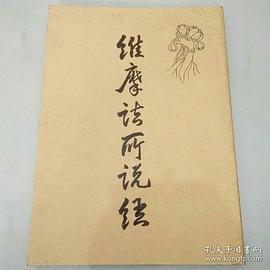 维摩诘所说经
孔夫子旧书网
www.kongfz.com